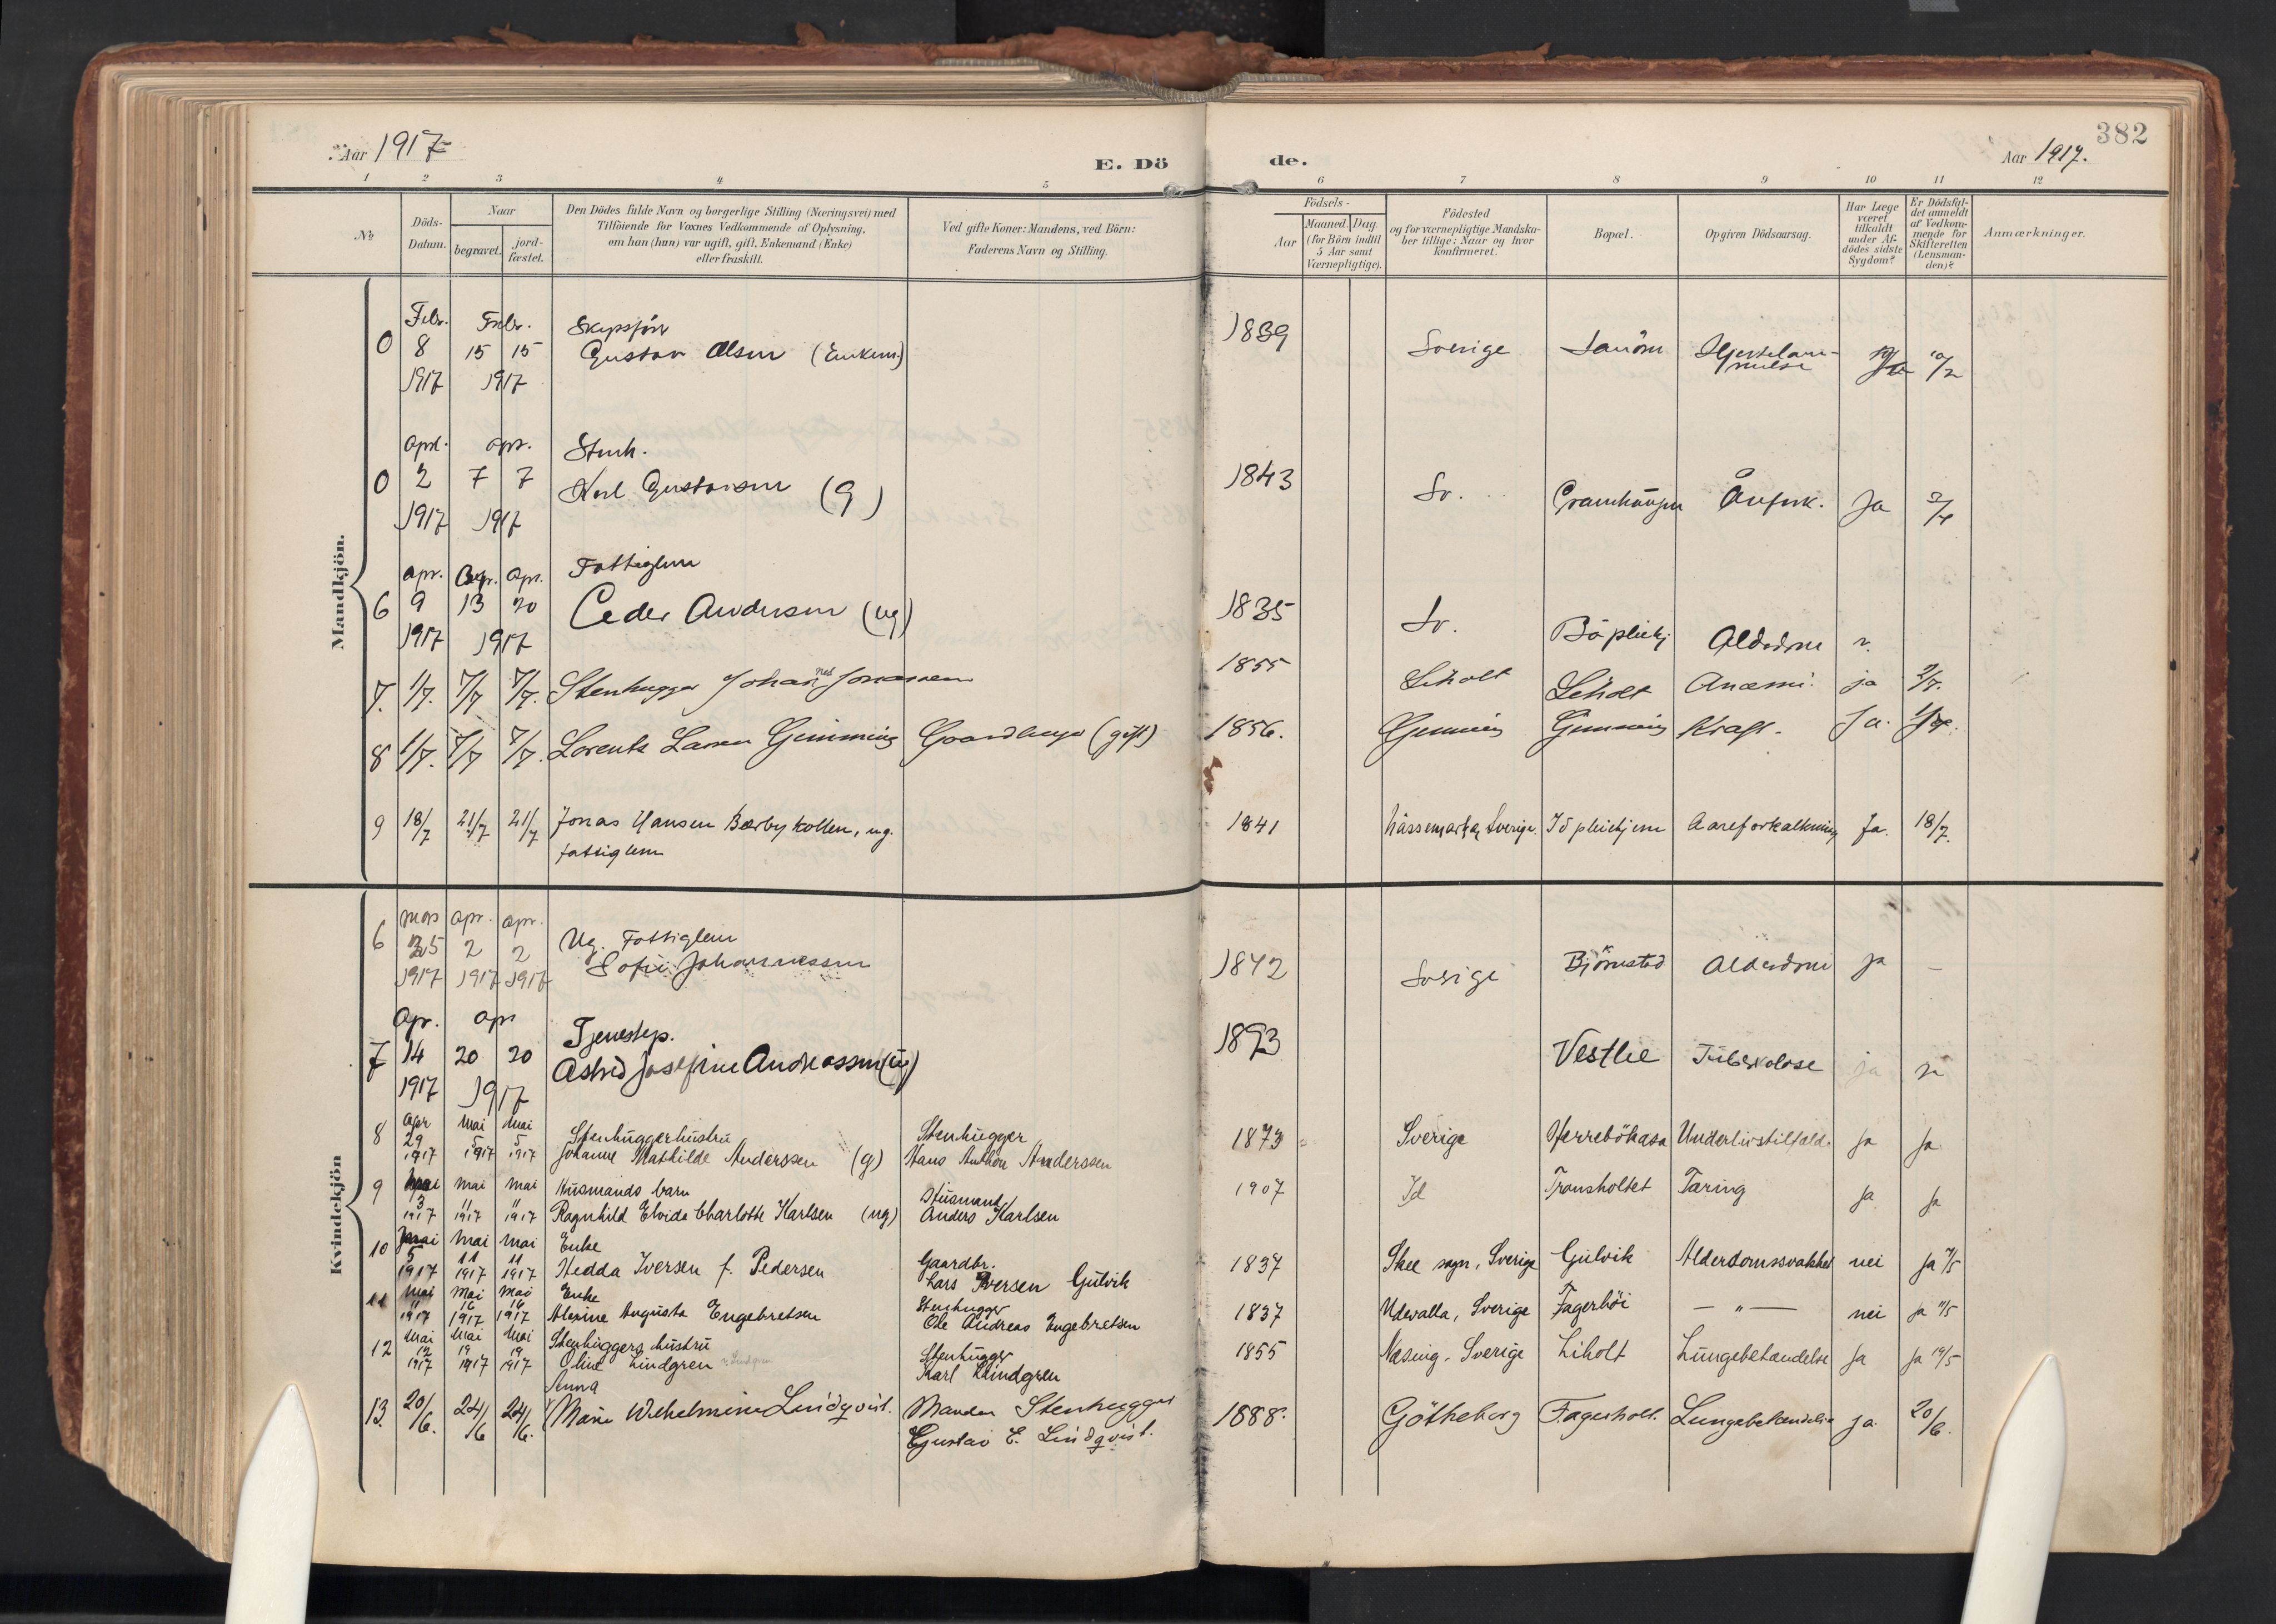 382
Aar 1917
E. Dö de.
Aar 1917.
1 2 3 4 5 6 7 8 9 10 11 12
No
Döds-Datum.
Naar
begravet.
jord-fæstet.
Den Dödes fulde Navn og borgerlige Stilling (Næringsvei) med
Tilföiende for Voxnes Vedkommende af Oplysning,
om han (hun) var ugift, gift, Enkemand (Enke)
eller fraskilt.
Ved gifte Koner: Mandens, ved Börn:
Faderens Navn og Stilling.
Födsels-
Aar
Maaned. Dag.
(for Börn indtil
5 Aar samt
Værnepligtige).
Födested
og for værnepligtige Mandska-
ber tillige: Naar og hvor
konfirmeret.
Bopæl.
Opgiven Dödsaarsag.
Har Læge
været
tilkaldt
under Af-
dödes sidste
Sygdom?
Er Dödsfal-
det anmeldt
af Vedkom-
mende for
Skifteretten
(Lensman-
den)?
Anmærkninger.
Mandkjön.
Febr. Febr. Skipsförer
0 8 15 15 Gustav Olsen (Enkem.) 1839 Sverige
1917 1917
April. Apr. Stenh.
0 2 7 7 Karl Gustavsen (g) 1843 Sv. Ja 2/4
1917 1917
Apr. Apr. Apr. Fattiglem
6 9 13 20 Peder Andersen (ug) 1835 Sv. Alderdom n.
1917 1917
7. 1/7. 7/7 7/7. Stenhugger Johannes Jonassen 1855 Liholt Liholt Anæmi. ja 2/7.
8 1/7. 7/7 7/7. Lorents Larsen Gimming Gaardbruger (gift) 1856. Gimming Gimming Kræft. Ja.
9 18/7 21/7 21/7 Jonas Hansen Bærby kollen, ug. 1841 Sverige. Id pleiehjem Aareforkalkning Ja. 18/7.
fattiglem
Kvindekjön
Mars Apr. Apr.
6 25 2 2 Ug. Fattiglem
1917 1917 1917 Sofie Johannessen 1842 Sverige Björnstad Alderdom ja —
Apr. Apr Tjenestep.
7 14 20 20 Astrid Josefine Andreassen (ug) 1893 Vestlie Tuberkolose ja ja
1917 1917
8 Apr Mai Mai Stenhuggerhustru Stenhugger
29 5 5
1917 1917 1917 Johanne Mathilde Anderssen (g) Hans Anthon Anderssen 1873 Sverige Herrebökasa Underlivstilfæld. ja ja
9 Mai Mai Mai Husmands barn Husmand
3 11 11
1917 1917 1917 Ragnhild Elvida Charlotte Karlsen (ug) Anders Karlsen 1907 Id Transholtet Tæring ja ja
10 Mai Mai Mai Enke Gaardbr.
5 11 11
1917 1917 1917 Hedda Iversen f. Pedersen Lars Iversen Gulvik 1837 Skee sogn, Sverige Gulvik Alderdomssvakhet nei ja 7/5
11 Mai Mai Mai Enke Stenhugger
11 16 16
1917 1917 1917 Alexine Augusta Engebretsen Ole Andreas Engebretsen 1837 Udevalla, Sverige Fagerhöi — " — nei ja 11/5
12 Mai Mai Mai Stenhuggers hustru Stenhugger
12 19 19
1917 1917 1917 Oline Lindgren Karl Lindgren 1855 Næsing, Sverige Liholt Lungebetændelse ja ja 14/5
Anna
13. 20/6. 24/6 24/6. Marie Wilhelmine Lindqvist. Manden Stenhugger 1888. Götheborg Fagerholt. Lungebetændelse ja. 20/6.
Gustav E. Lindqvist.